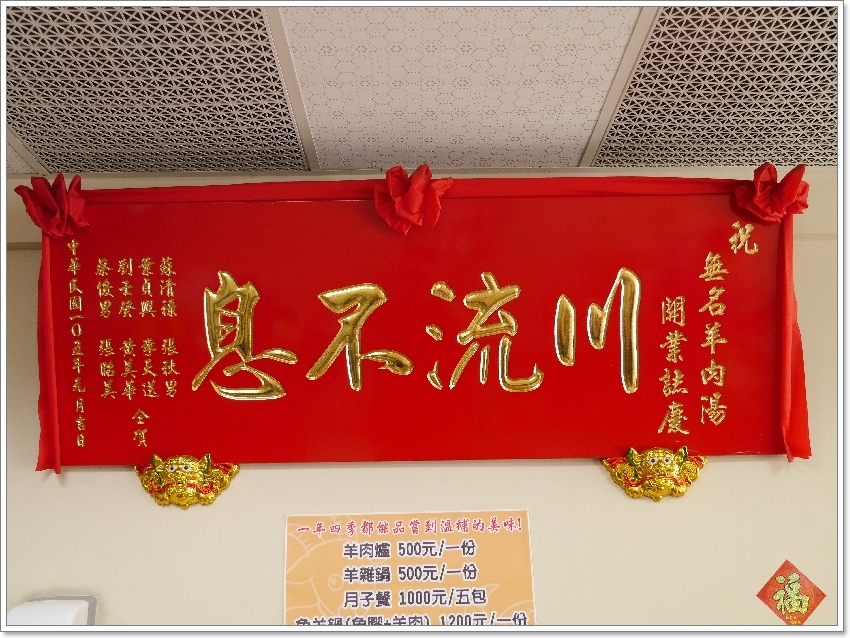 祝
無名羊肉陽
開業誌慶
川流不息
蘇清祿 張秋男
葉貞興 李天送
劉壬癸 黃美華 仝賀
蔡俊男 張皓美
中華民國一〇五年元月吉日
一年四季都能品嘗到溫補的美味!
羊肉爐 500元/一份
羊雜鍋 500元/一份
月子餐 1000元/五包
魚羊鍋(魚腳+羊肉) 1200元/一份
福